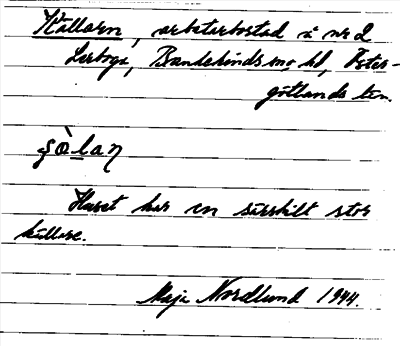 Källarn, arbetarbostad å nr 2
Lerboga, Bankekinds sn o hd, Öster-
götlands län.
Huset har en särskilt stor
källare.
Maja Nordlund 1944.